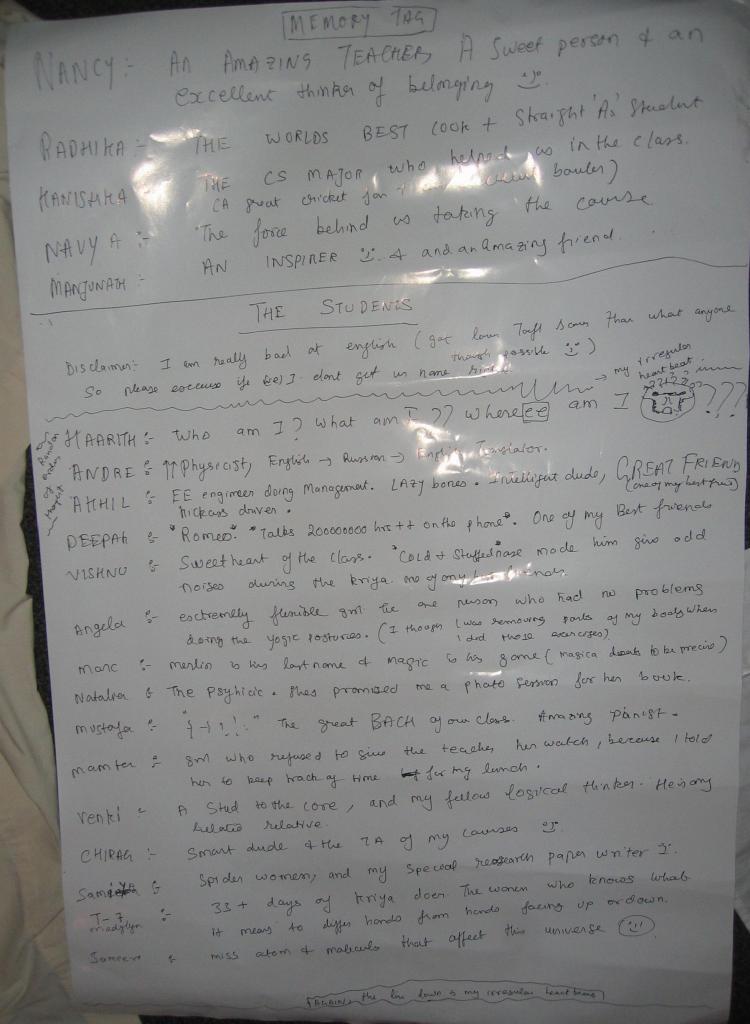 MEMORY TAG
NANCY:- AN AMAZING TEACHER, A sweet person & an
excellent thinker of belonging
RADHIKA:- THE WORLDS BEST COOK + Straight 'As' Student
KANISHKA THE CS MAJOR who helped us in the class.
(A great cricket fan bowler)
NAVYA:- The force behind us taking the course
MANJUNATH:- AN INSPIRER & and an amazing friend.
THE STUDENTS
Disclaimer:- I am really bad at english (got lower Toefl scores than what anyone
though possible)
So please excuse if I dont get ur name
my irregular
heart beat.
HAARITH:- Who am I? What am I?? where am I ???
ANDRE:- Physicist, English → Russian → English Translator.
AKHIL:- EE engineer doing Management. LAZY bones. Intelligent dude, GREAT FRIEND
driver. (one of my best friend)
DEEPAK:- "Romeo". "Talks 200000000 hrs ++ on the phone". One of my Best friends
VISHNU:- Sweetheart of the class. "Cold & Stuffed nose made him give odd
noises during the kriya one of my friends
Angela:- extremely flexible one person who had no problems
doing the yogic postures. (I though I was removing parts of my body when
I did those exercises)
Marc:- merlin is his last name & magic is his game (magica to be precise)
Natalia The Psyhicic. shes promised me a photo session for her book.
mustafa:- The great BACH of our class. Amazing pianist.
who refused to give the teacher her watch, because I told
her to keep track of time for my lunch.
Venki A Stud to the core, and my fellow logical thinker. He is my
relative.
CHIRAG:- Smart dude & the TA of my courses
Spider women, and my special research paper writer
33+ days of kriya doer. The women who knows what
it means to differ hands from hands facing up or down.
Sameera miss atom & molecule that affect this universe
[AGAIN the line down is my irregular heart beat]